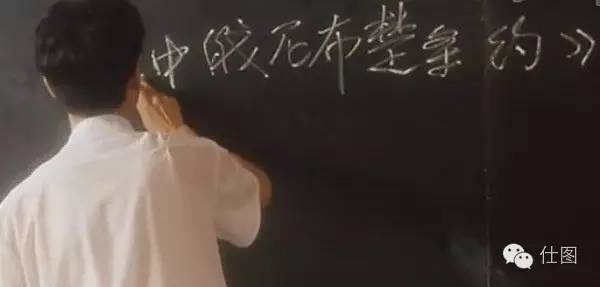 中俄尼布楚条约》
仕图